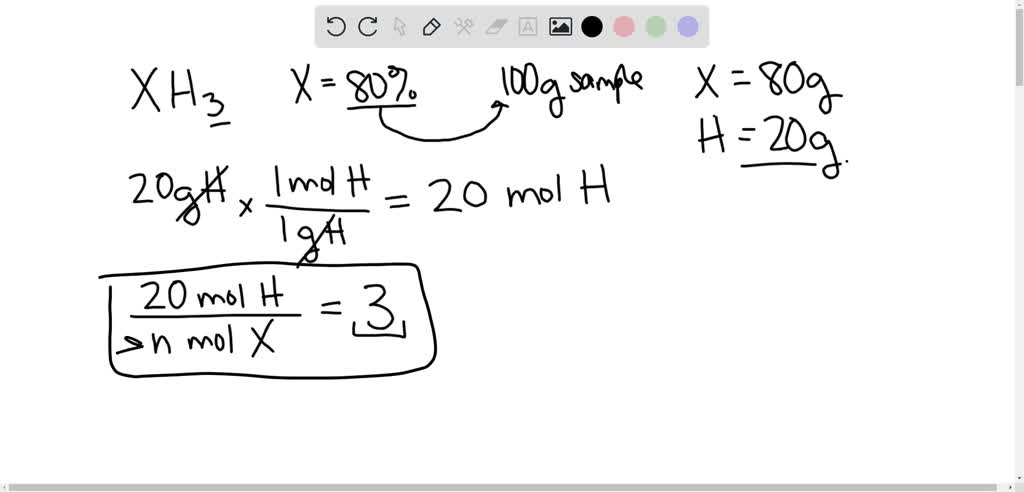 XH₃ X = 80% 100g sample X = 80g
H = 20g.
20gH x 1 mol H / 1gH = 20 mol H
20 mol H / n mol X = 3
A